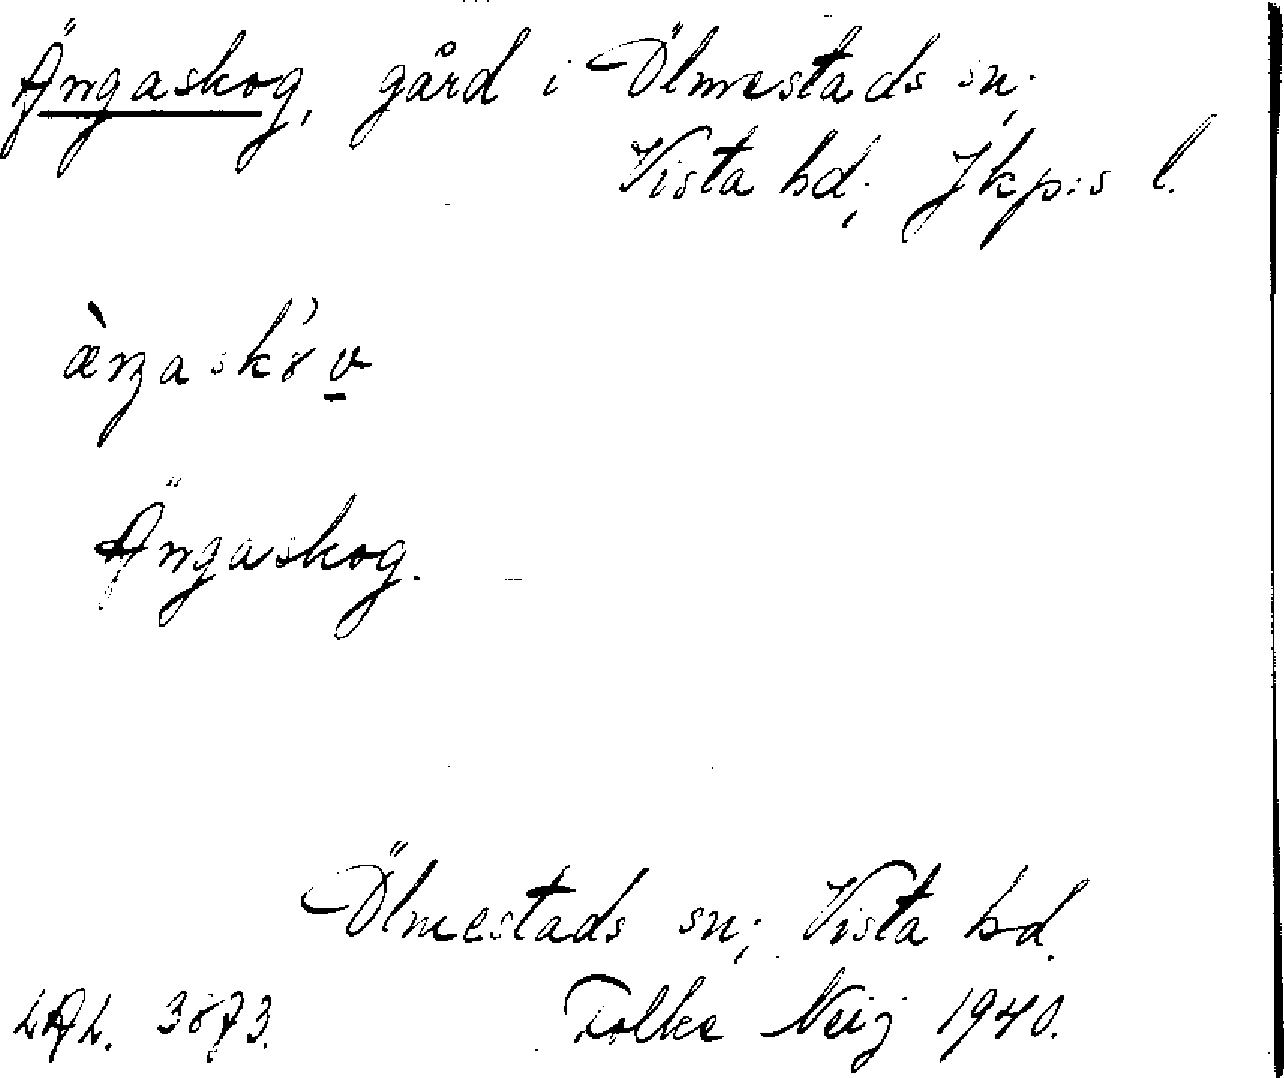 Ängaskog, gård i Ölmestads sn.;
Vista hd.; Jkp:s l.
Ängaskog.
Ölmestads sn.; Vista hd.
LAL. 3873. Folke Neij 1940.